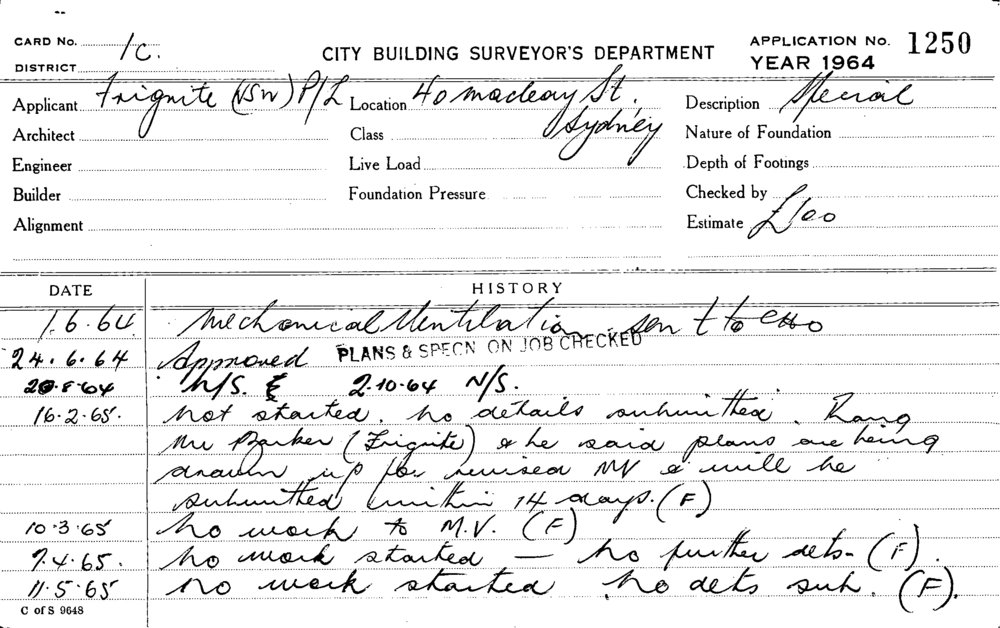 CARD No. 1c.
CITY BUILDING SURVEYOR'S DEPARTMENT
APPLICATION No. 1250
DISTRICT
YEAR 1964
Applicant Frignite (NSW) P/L Location 40 Macleay St. Description Special
Sydney
Architect Class Nature of Foundation
Engineer Live Load Depth of Footings
Builder Foundation Pressure Checked by
Alignment Estimate £100
DATE HISTORY
1.6.64 Mechanical Ventilation sent to
24.6.64 Approved PLANS & SPECN ON JOB CHECKED
20.8.64 N/S. 2.10.64 N/S.
16.2.65. Not started. No details submitted. Rang
Mr Barker (Frignite) & he said plans are being
drawn up for revised MV & will be
submitted within 14 days. (F)
10.3.65 No work to M.V. (F)
7.4.65. No work started — No further dets- (F).
11.5.65 No work started No dets sub. (F).
C of S 9648